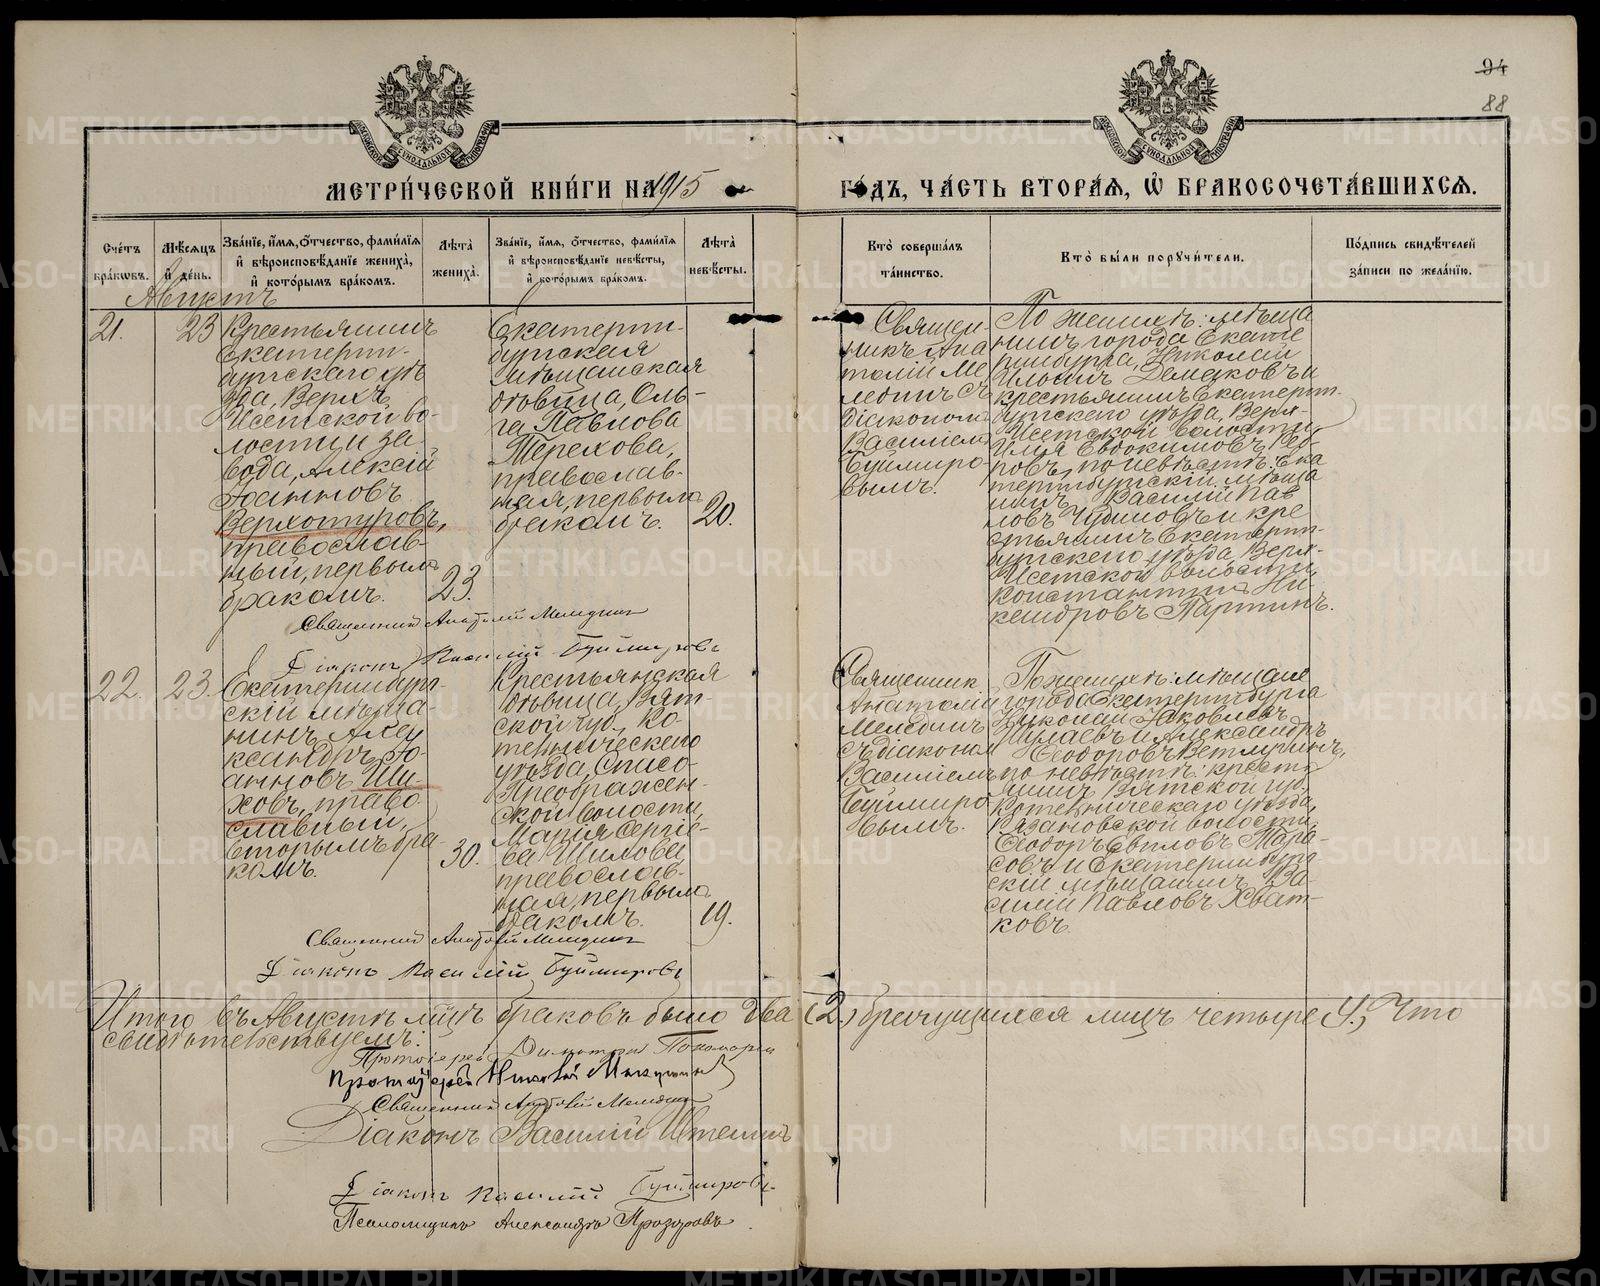 94
88
МЕТРИ́ЧЕСКОЙ КНИ́ГИ НА 1915
ГО́ДЪ, ЧА́СТЬ ВТОРА́Я, Ѡ҆ БРАКОСОЧЕТА́ВШИХСЯ.
Сче́тъ бра́кѡвъ.
Мѣ́сяцъ и҆ де́нь.
Зва́нїе, и҆́мя, ѻ҆́тчество, фами́лїя и҆ вѣроисповѣ́данїе жениха̀, и҆ кото́рымъ бра́комъ.
Лѣ́та̀ жениха̀.
Зва́нїе, и҆́мя, ѻ҆́тчество, фами́лїя и҆ вѣроисповѣ́данїе невѣ́сты, и҆ кото́рымъ бра́комъ.
Лѣ́та̀ невѣ́сты.
Кто̀ соверша́лъ та́инство.
Кто̀ бы́ли порꙋчи́тели.
По́дпись свидѣ́телей за́писи по жела́нїю.
Августъ
21.
23
Крестьянинъ
Екатерин-
бургскаго уѣ
зда, Верхъ
Исетской во-
лости и за
вода, Алексій
Іоанновъ
Верхотуровъ,
православ-
ный, первымъ
бракомъ.
23.
Екатерин-
бургская
мѣщанская
дѣвица, Оль-
га Павлова
Терехова,
православ-
ная, первымъ
бракомъ.
20.
Священ-
никъ Ана
толій Ме
лединъ съ
діакономъ
Василіемъ
Буймиро-
вымъ.
По женихѣ: мѣща
нинъ города Екате
ринбурга, Николай
Ильинъ и
крестьянинъ Екатерин-
бургскаго уѣзда, Верх-
Исетской волости
Илія Евдокимовъ
по невѣстѣ: Ека
теринбургскій мѣща
нинъ Василій Пав
ловъ Чудиновъ и кре
стьянинъ Екатерин-
бургскаго уѣзда, Верх-
Исетской волости,
Константинъ Ни
кандровъ Партинъ.
Священникъ Анатолій Мелединъ
Діаконъ Василій Буймировъ
22.
23.
Екатеринбург-
скій мѣща-
нинъ Алек
сандръ Іо-
анновъ Ши-
ховъ, право
славный,
вторымъ бра-
комъ.
30.
Крестьянская
дѣвица, Вят-
ской губ. Ко-
тельническаго
уѣзда, Спасо-
Преображен-
ской волости,
Марія Сергіе-
ва Шихова,
православ-
ная, первымъ
бракомъ.
19.
Священникъ
Анатолій
Мелединъ
съ діакономъ
Василіемъ
Буймиро
вымъ.
По женихѣ: мѣщане
города Екатеринбурга
Николай Яковлевъ
и Александръ
Ѳеодоровъ
по невѣстѣ: кресть
янинъ Вятской губ.
Котельническаго уѣзда,
Казаковской волости,
Ѳеодоръ Тара-
совъ и Екатеринбург-
скій мѣщанинъ Ва-
силій Павловъ Хват-
ковъ.
Священникъ Анатолій Мелединъ
Діаконъ Василій Буймировъ
Итого въ Августѣ м-цѣ браковъ было два (2.) брачущихся лицъ четыре (4.) Что
свидѣтельствуемъ:
Протоіерей Димитрій Пономаревъ
Протоіерей Николай
Священникъ Анатолій Мелединъ
Діаконъ Василій
Діаконъ Василій Буймировъ
Псаломщикъ Александръ Прозоровъ
METRIKI.GASO-URAL.RU